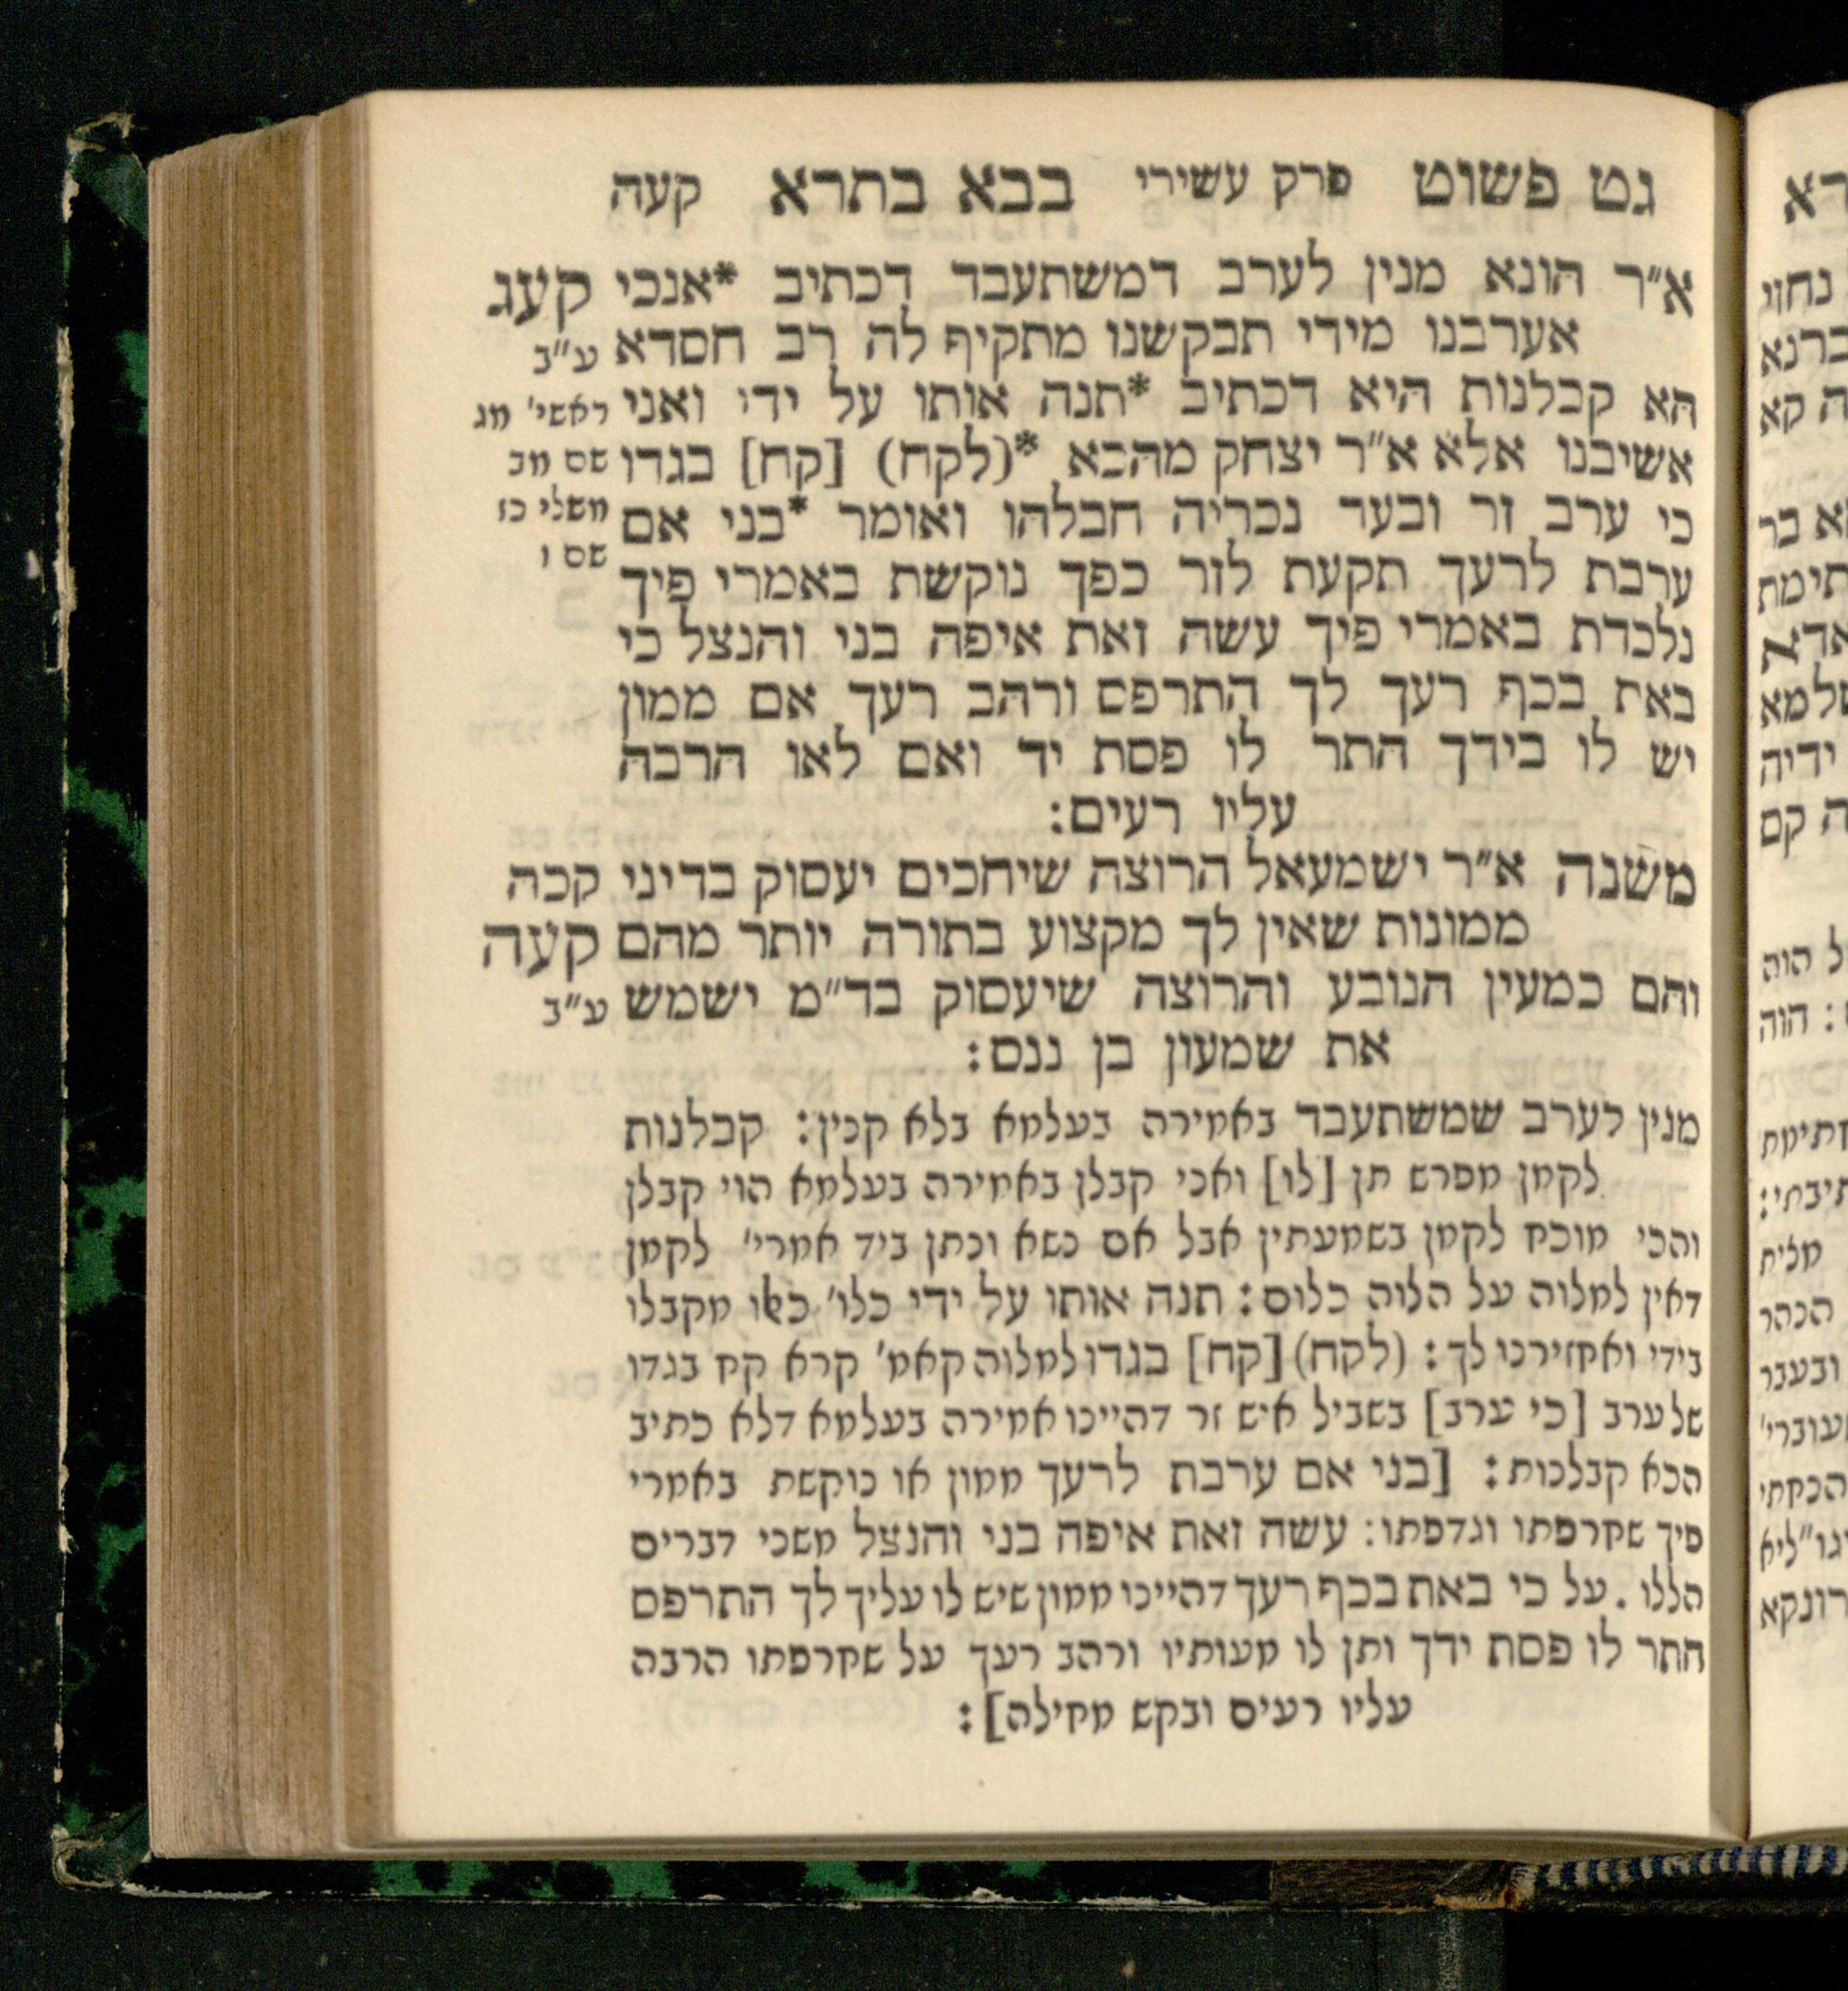 גט פשוט פרק עשירי בבא בתרא קעה
א״ר הונא מנין לערב דמשתעבד דכתיב *אנכי קעג
אערבנו מידי תבקשנו מתקיף לה רב חסדא ע״ב
הא קבלנות היא דכתיב *תנה אותו על ידי ואני ראשי׳ מג
אשיבנו אלא א״ר יצחק מהכא *(לקח) [קח] בגדו שם מב
כי ערב זר ובעד נכריה חבלהו ואומר *בני אם משלי כז
ערבת לרעך תקעת לזר כפך נוקשת באמרי פיך שם ו
נלכדת באמרי פיך עשה זאת איפה בני והנצל כי
באת בכף רעך לך התרפס ורהב רעך אם ממון
יש לו בידך התר לו פסת יד ואם לאו הרבה
עליו רעים:
משנה א״ר ישמעאל הרוצה שיחכים יעסוק בדיני קכה
ממונות שאין לך מקצוע בתורה יותר מהם קעה
והם כמעין הנובע והרוצה שיעסוק בד״מ ישמש ע״ב
את שמעון בן ננס:
מנין לערב שמשתעבד באמירה בעלמא בלא קנין: קבלנות
לקמן מפרש תן [לו] ואני קבלן באמירה בעלמא הוי קבלן
והכי מוכח לקמן בשמעתין אבל אם נשא ונתן ביד אמרי׳ לקמן
דאין למלוה על הלוה כלום: תנה אותו על ידי כלו׳ כאלו מקבלו
בידי ואחזירנו לך: (לקח) [קח] בגדו למלוה קאמ׳ קרא קח בגדו
של ערב [כי ערב] בשביל איש זר דהיינו אמירה בעלמא דלא כתיב
הכא קבלנות: [בני אם ערבת לרעך ממון או נוקשת באמרי
פיך שחרפתו וגדפתו: עשה זאת איפה בני והנצל משני דברים
הללו. על כי באת בכף רעך דהיינו ממון שיש לו עליך לך התרפס
חתר לו פסת ידך ותן לו מעותיו ורהב רעך על שחרפתו הרבה
עליו רעים ובקש מחילה]: